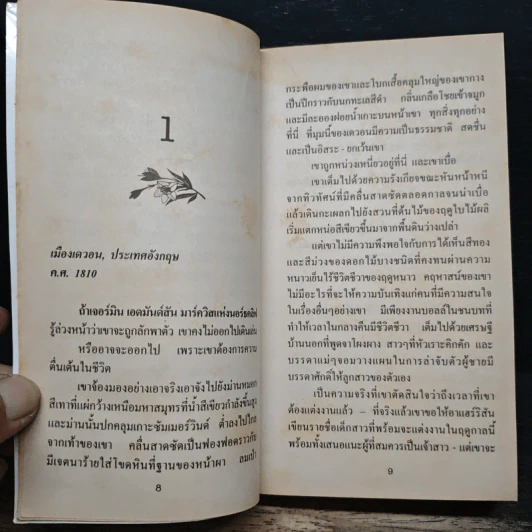 1
เมืองเดวอน, ประเทศอังกฤษ
ค.ศ. 1810
ถ้าเจอร์มิน เอดมันต์สัน มาร์ควิสแห่งนอร์ธคลิฟ
รู้ล่วงหน้าว่าเขาจะถูกลักพาตัว เขาคงไม่ออกไปเดินเล่น
หรืออาจจะออกไป เพราะเขาต้องการความ
ตื่นเต้นในชีวิต
เขาจ้องมองอย่างเอาจริงเอาจังไปยังม่านหมอก
สีเทาที่แผ่กว้างเหนือมหาสมุทรที่น้ำสีเขียวกำลังขึ้นสูง
และม่านนั้นปกคลุมเกาะซัมเมอร์วินด์ ต่ำลงไปไกล
จากเท้าของเขา คลื่นสาดซัดเป็นฟองฟอดราวกับ
มีเจตนาร้ายใส่โขดหินที่ฐานของหน้าผา ลมเป่า
8
กระพือผมของเขาและโบกเสื้อคลุมใหญ่ของเขากาง
เป็นปีกราวกับนกทะเลสีดำ กลิ่นเกลือโชยเข้าจมูก
และมีละอองฝอยน้ำเกาะบนหน้าเขา ทุกสิ่งทุกอย่าง
ที่นี่ ที่มุมนี้ของเดวอนมีความเป็นธรรมชาติ สดชื่น
และเป็นอิสระ - ยกเว้นเขา
เขาถูกหน่วงเหนี่ยวอยู่ที่นี่ และเขาเบื่อ
เขาเต็มไปด้วยความรังเกียจขณะหันหน้าหนี
จากทิวทัศน์ที่มีคลื่นสาดซัดตลอดกาลจนน่าเบื่อ
แล้วเดินกะเผลกไปยังสวนที่ต้นไม้ของฤดูใบไม้ผลิ
เริ่มแตกหน่อสีเขียวขึ้นมาจากพื้นดินว่างเปล่า
แต่เขาไม่มีความพึงพอใจกับการได้เห็นสีทอง
และสีม่วงของดอกไม้บางชนิดที่คงทนผ่านความ
หนาวเย็นไร้ชีวิตชีวาของฤดูหนาว คฤหาสน์ของเขา
ไม่มีอะไรที่จะให้ความบันเทิงแก่คนที่มีความสนใจ
ในเรื่องอื่นๆอย่างเขา มีเพียงงานบอลล์ในชนบทที่
ทำให้เวลาในกลางคืนมีชีวิตชีวา เต็มไปด้วยเศรษฐี
บ้านนอกที่พูดจาโผงผาง สาวๆที่หัวเราะคิกคัก และ
บรรดาแม่ๆจอมวางแผนในการล่าจับตัวผู้ชายมี
บรรดาศักดิ์ให้ลูกสาวของตัวเอง
เป็นความจริงที่เขาตัดสินใจว่าถึงเวลาที่เขา
ต้องแต่งงานแล้ว - ที่จริงแล้วเขาขอให้อาแฮร์ริสัน
เขียนรายชื่อเด็กสาวที่พร้อมจะแต่งงานในฤดูกาลนี้
พร้อมทั้งเสนอแนะผู้ที่สมควรเป็นเจ้าสาว - แต่เขาจะ
9